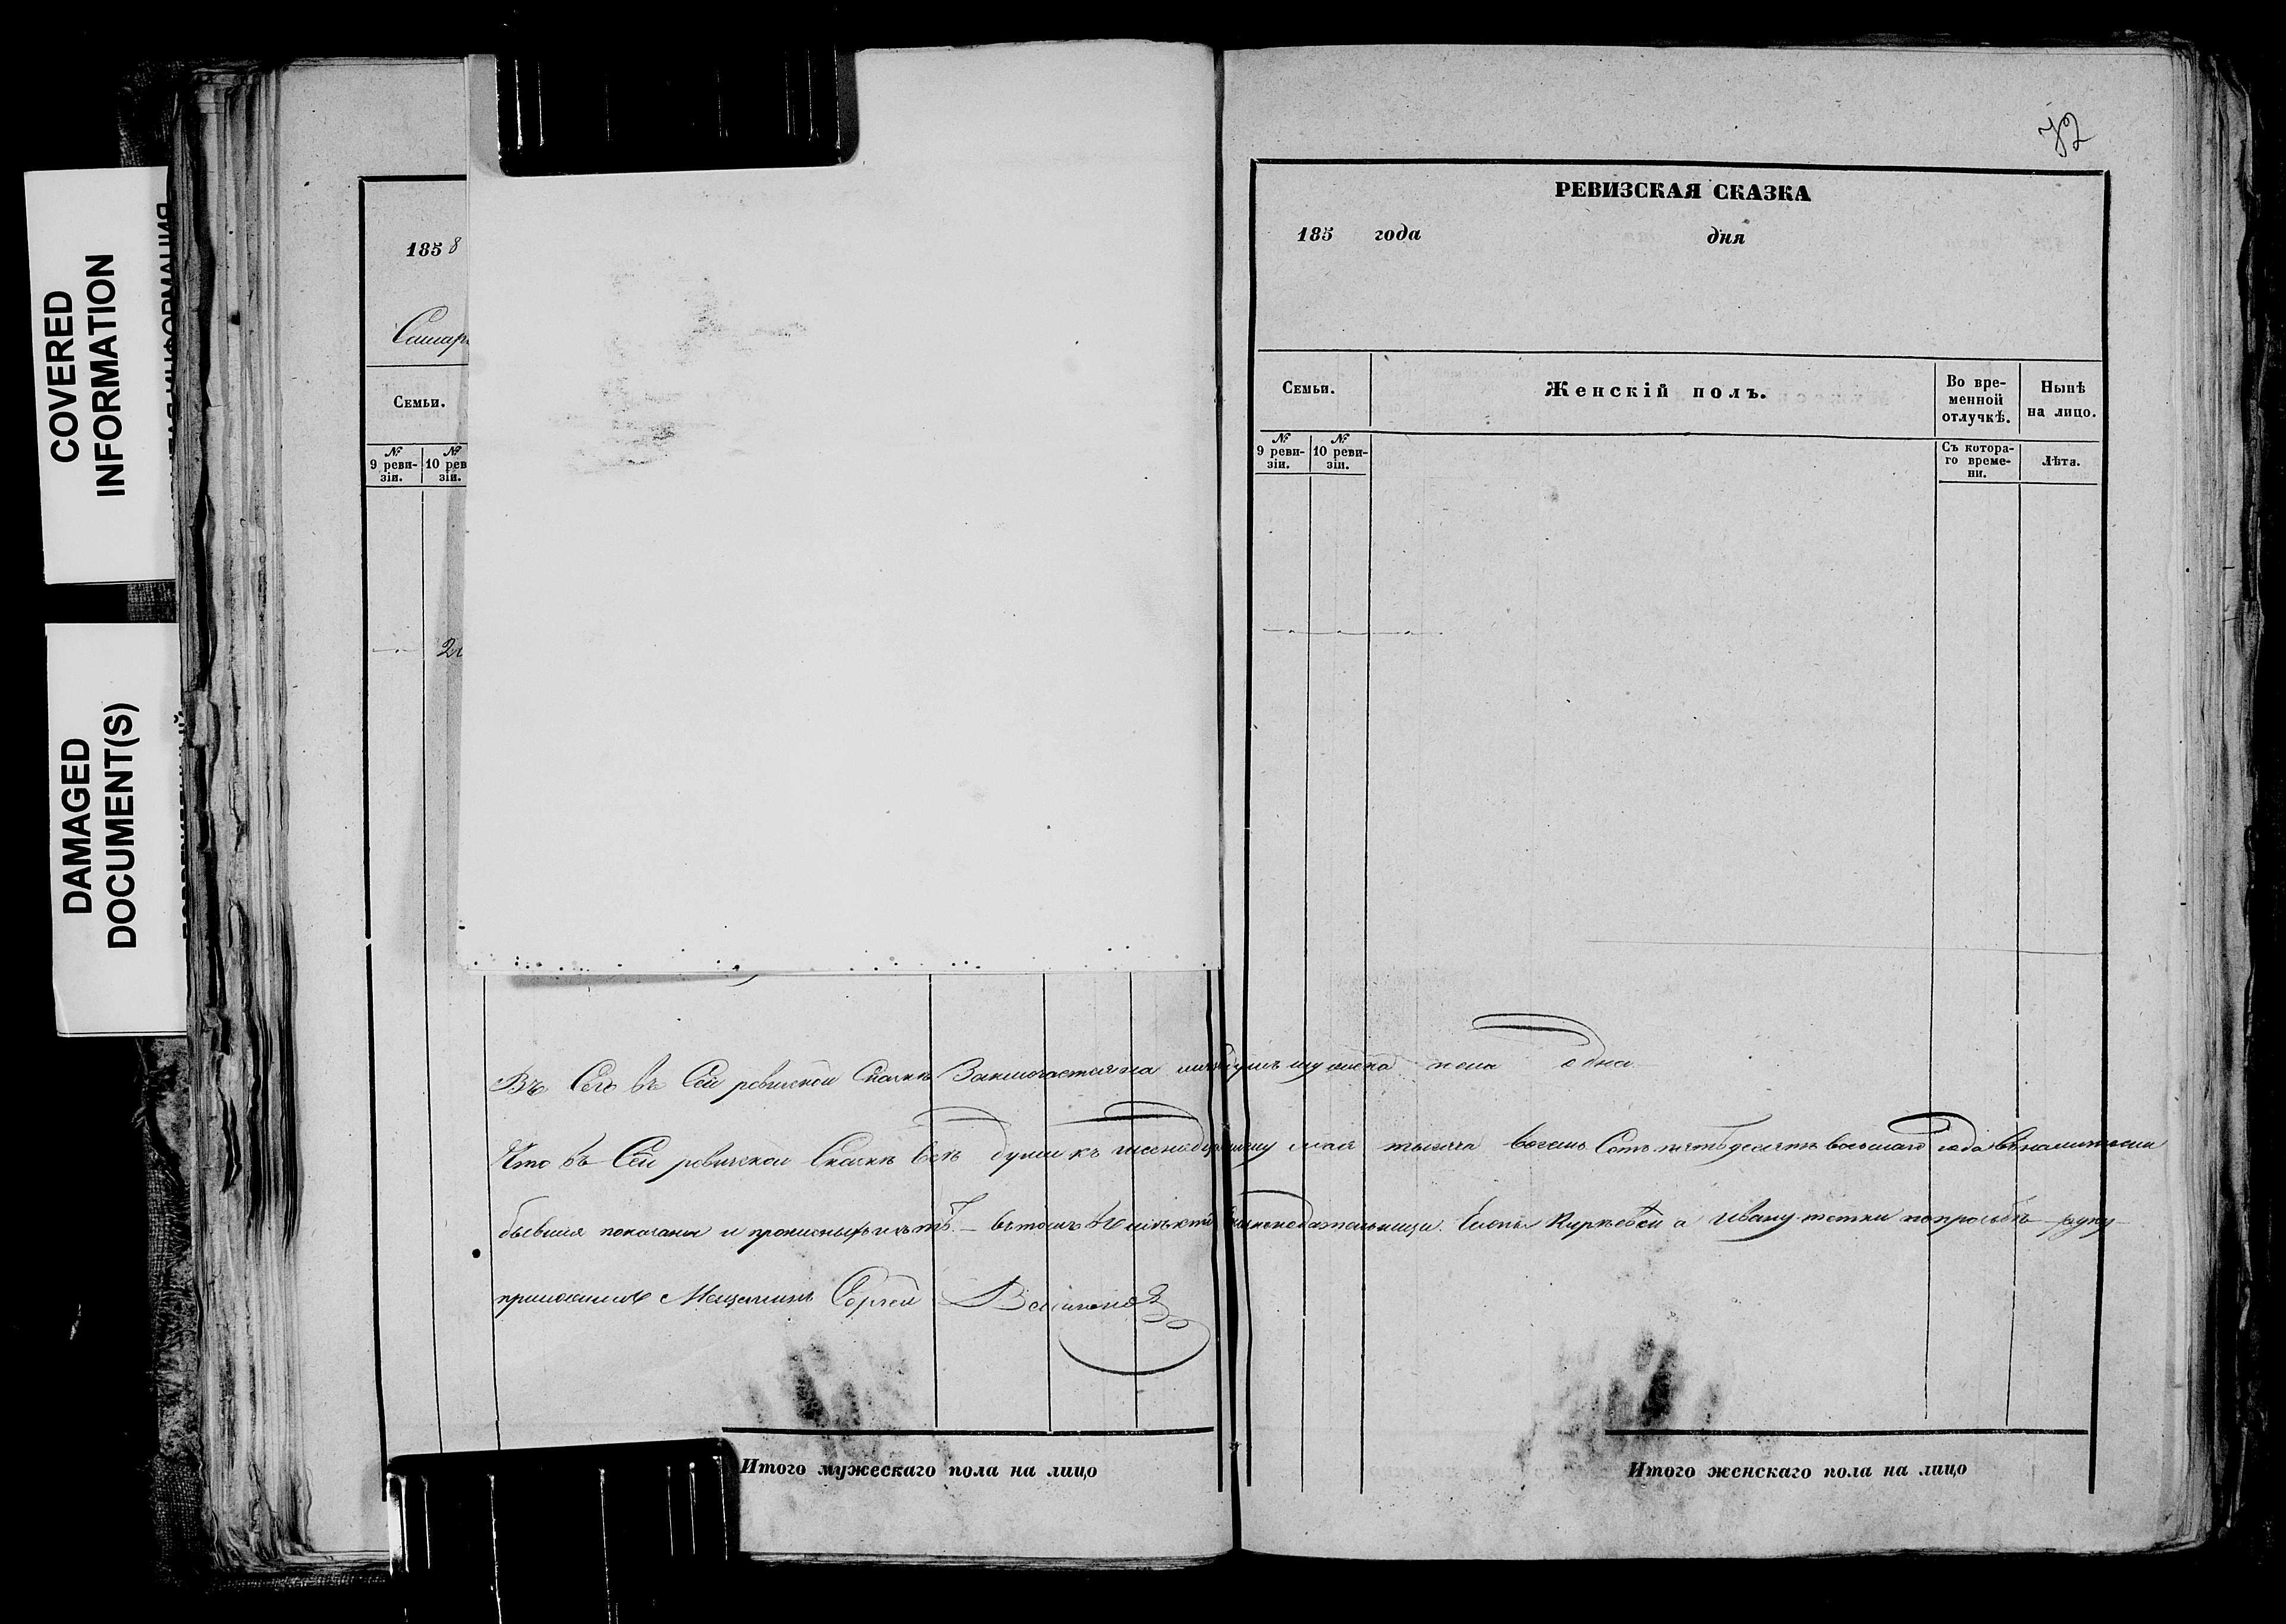 COVERED
INFORMATION
DAMAGED
DOCUMENT(S)
1858
Самар
Семьи.
№ 9 реви-зіи.
№ 10 рев зіи.
Въ Сего въ Сей ревиской Сказкѣ Заключается на лицо душъ мужска пола одна
Что въ Сей ревиской Сказкѣ всѣ души къ мая тысяча восемь Сотъ пятьдесятъ восьмаго года въ наличности
бывшия показаны и прописныхъ нѣтъ. въ томъ Елены а Ивану тетки по прозьбѣ руку
приложилъ Мещанинъ Сергей
Итого мужескаго пола на лицо
72
РЕВИЗСКАЯ СКАЗКА
185 года дня
Семьи.
Женскій полъ.
Во вре-менной отлучкѣ.
Нынѣ на лицо.
№ 9 реви-зіи.
№ 10 реви-зіи.
Съ котора-го време-ни.
Лѣта.
Итого женскаго пола на лицо